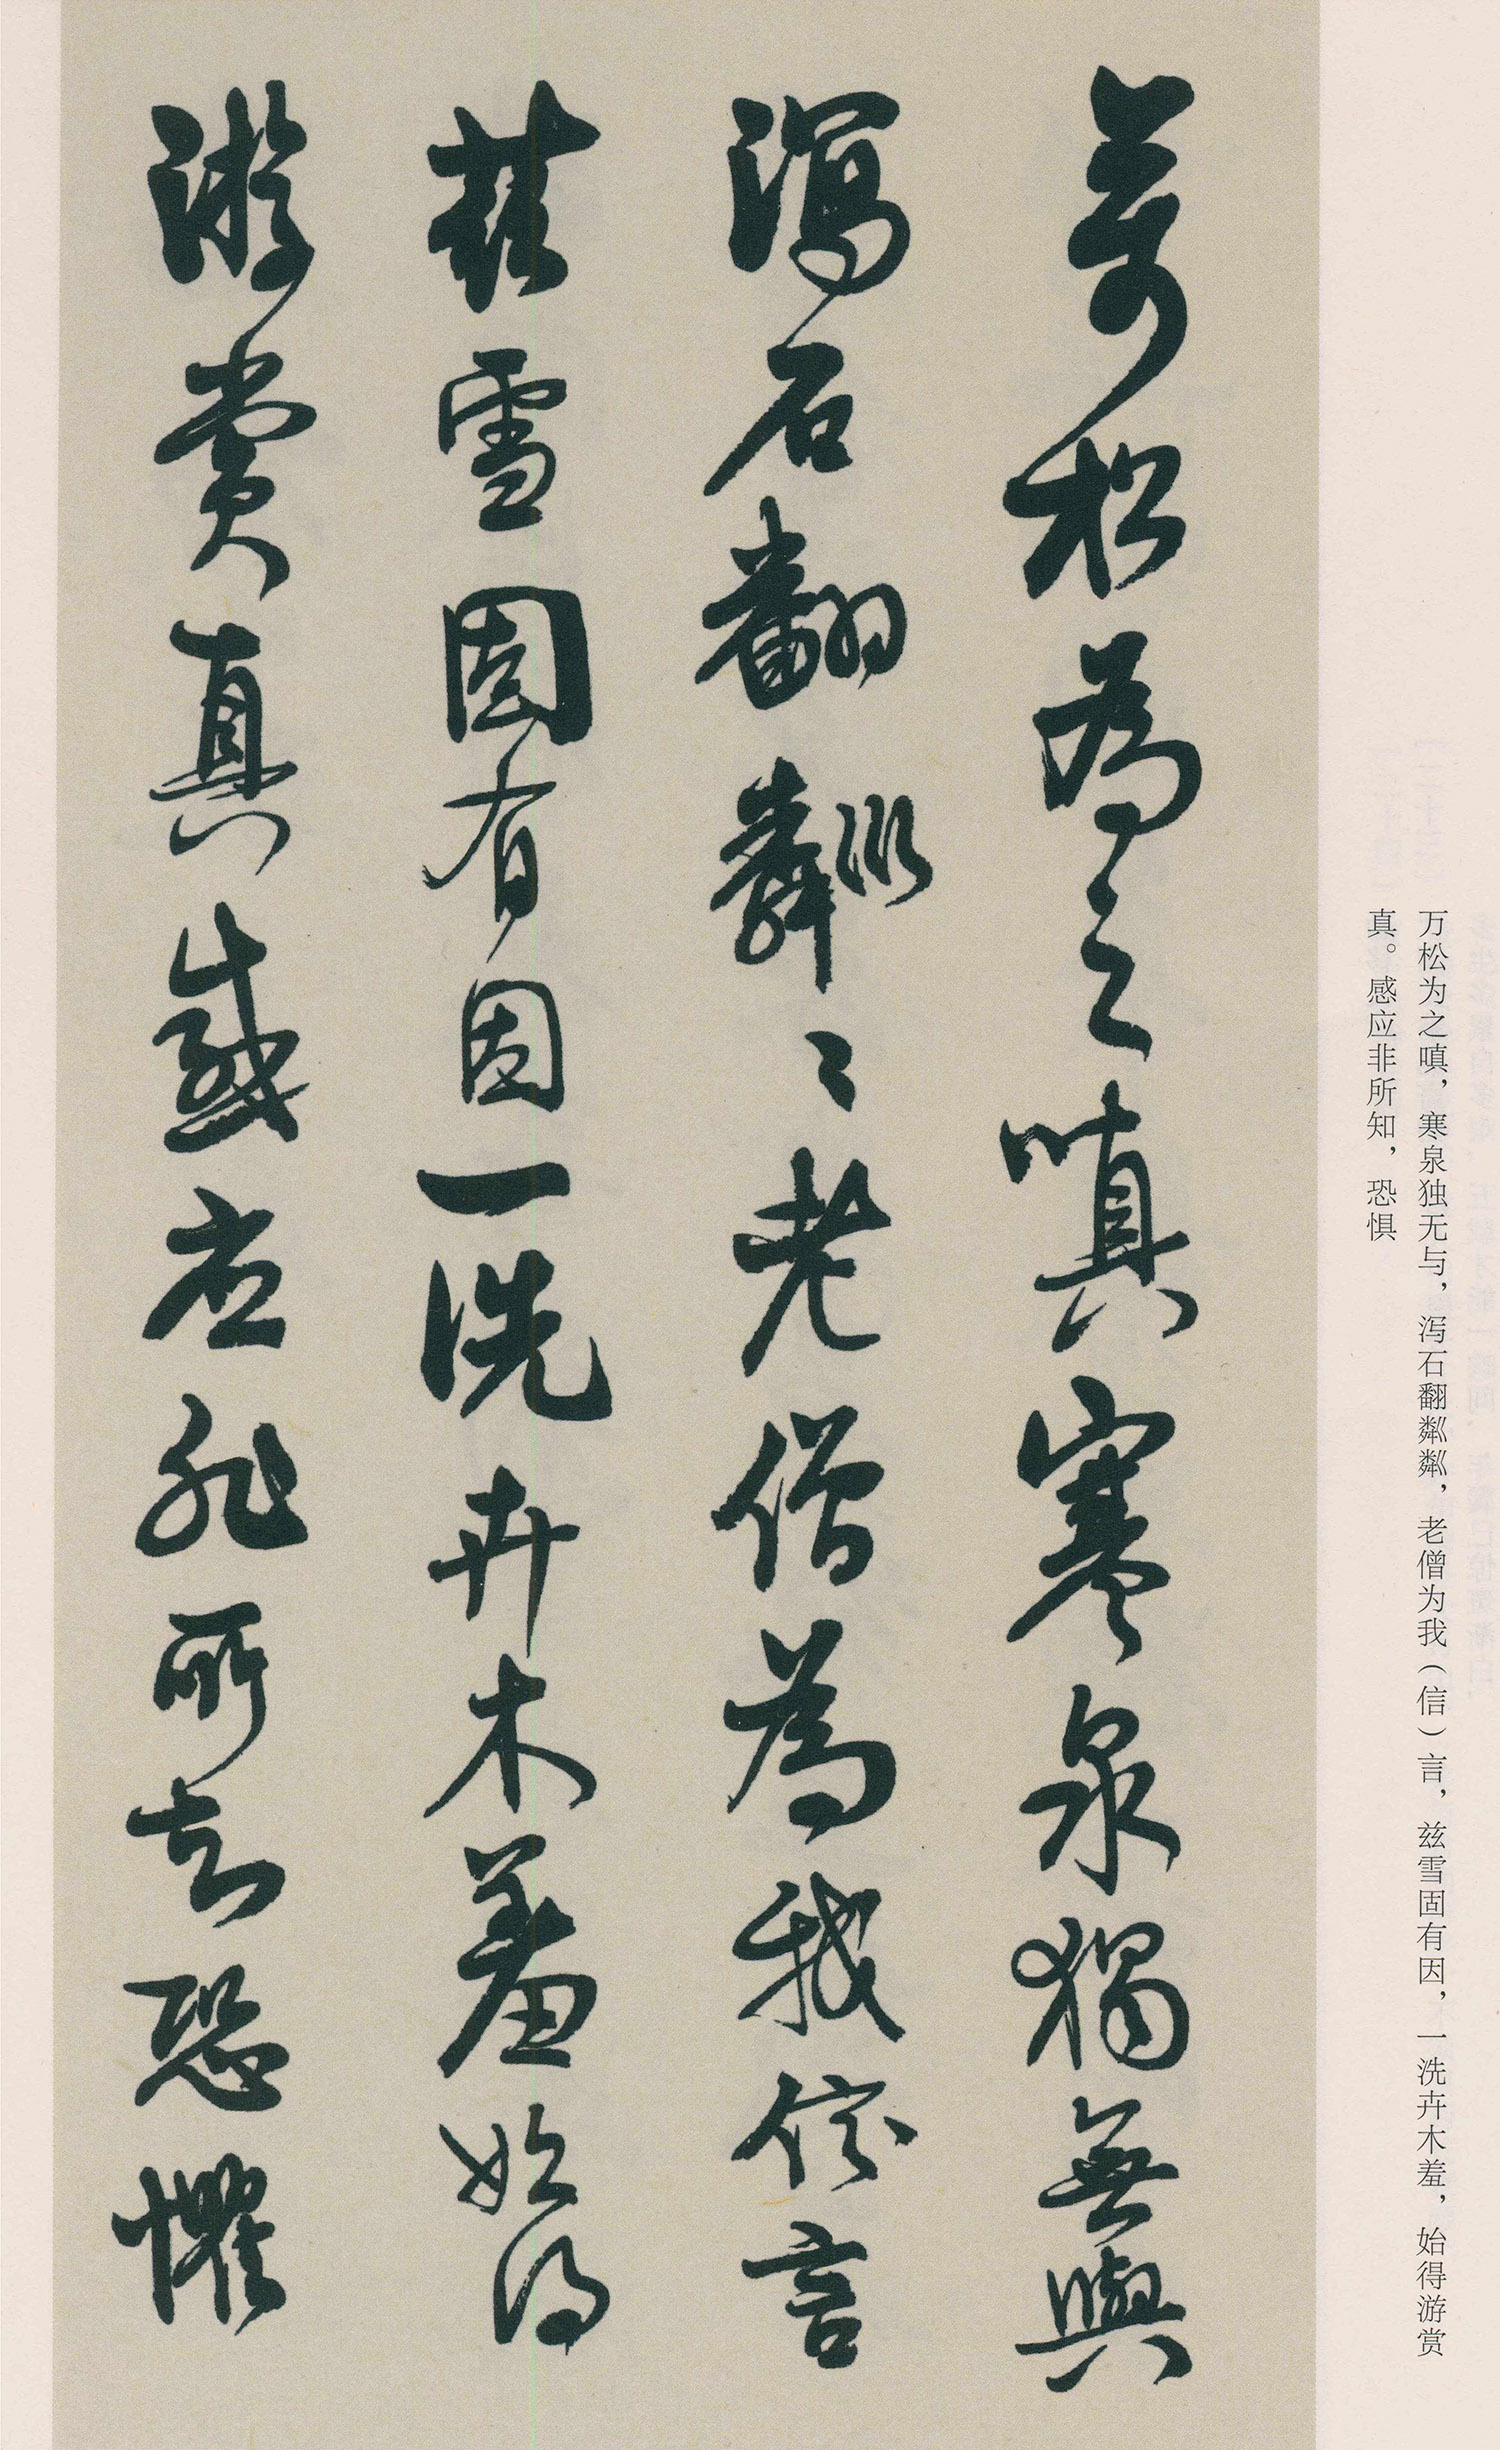 万松为之嗔，寒泉独无与，泻石翻粼粼，老僧为我（信）言，兹雪固有因，一洗卉木羞，始得游赏
真。感应非所知，恐惧
萬松為之嗔寒泉獨無與
瀉石翻粼〻老僧為我信言
茲雪固有因一洗卉木羞始得
游賞真感应非所知恐懼